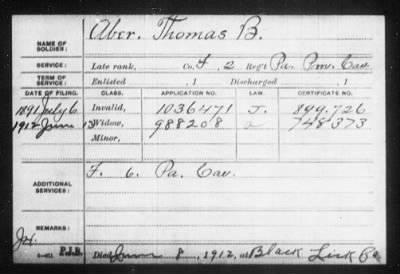 Aber, Thomas B.
NAME OF SOLDIER:
SERVICE: Late rank, Co. F, 2 Reg't Pa. Prov. Cav.
TERM OF SERVICE: Enlisted , 1 Discharged , 1
DATE OF FILING. CLASS. APPLICATION NO. LAW. CERTIFICATE NO.
1891 July 6 Invalid, 1036471 J. 899.726
1912 June 13 Widow, 988208 748373
Minor,
ADDITIONAL SERVICES: F. 6. Pa. Cav.
REMARKS:
P.I.B.
Died June 8, 1912, at Black Lick Pa